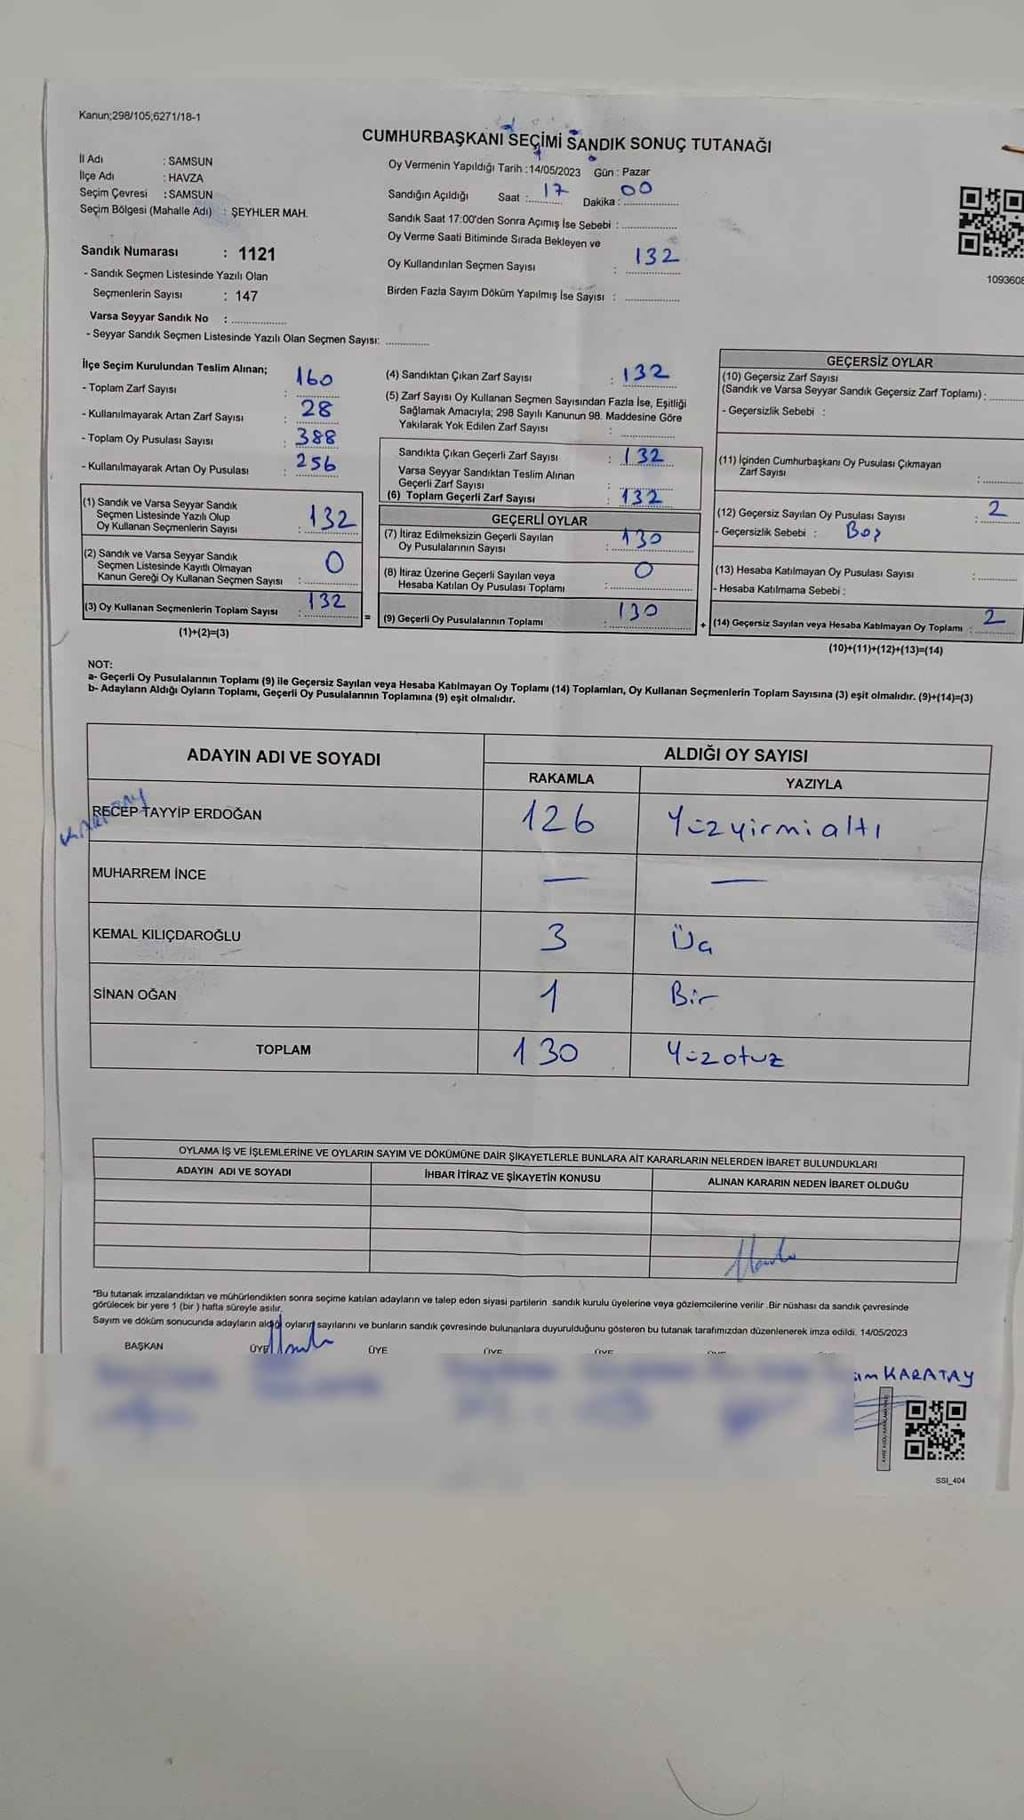 Kanun;298/105,6271/18-1
CUMHURBAŞKANI SEÇİMİ SANDIK SONUÇ TUTANAĞI
İl Adı : SAMSUN
İlçe Adı : HAVZA
Seçim Çevresi : SAMSUN
Seçim Bölgesi (Mahalle Adı) : ŞEYHLER MAH.
Oy Vermenin Yapıldığı Tarih : 14/05/2023 Gün : Pazar
Sandığın Açıldığı Saat : 17 Dakika : 00
Sandık Saat 17:00'den Sonra Açımış İse Sebebi :
Oy Verme Saati Bitiminde Sırada Bekleyen ve
Oy Kullandırılan Seçmen Sayısı : 132
Birden Fazla Sayım Döküm Yapılmış İse Sayısı :
1093608
Sandık Numarası : 1121
- Sandık Seçmen Listesinde Yazılı Olan
Seçmenlerin Sayısı : 147
Varsa Seyyar Sandık No :
- Seyyar Sandık Seçmen Listesinde Yazılı Olan Seçmen Sayısı:
İlçe Seçim Kurulundan Teslim Alınan;
- Toplam Zarf Sayısı : 160
- Kullanılmayarak Artan Zarf Sayısı : 28
- Toplam Oy Pusulası Sayısı : 388
- Kullanılmayarak Artan Oy Pusulası : 256
(1) Sandık ve Varsa Seyyar Sandık
Seçmen Listesinde Yazılı Olup
Oy Kullanan Seçmenlerin Sayısı : 132
(2) Sandık ve Varsa Seyyar Sandık
Seçmen Listesinde Kayıtlı Olmayan
Kanun Gereği Oy Kullanan Seçmen Sayısı : 0
(3) Oy Kullanan Seçmenlerin Toplam Sayısı : 132
(1)+(2)=(3)
(4) Sandıktan Çıkan Zarf Sayısı : 132
(5) Zarf Sayısı Oy Kullanan Seçmen Sayısından Fazla İse, Eşitliği
Sağlamak Amacıyla; 298 Sayılı Kanunun 98. Maddesine Göre
Yakılarak Yok Edilen Zarf Sayısı :
Sandıkta Çıkan Geçerli Zarf Sayısı : 132
Varsa Seyyar Sandıktan Teslim Alınan
Geçerli Zarf Sayısı :
(6) Toplam Geçerli Zarf Sayısı : 132
GEÇERLİ OYLAR
(7) İtiraz Edilmeksizin Geçerli Sayılan
Oy Pusulalarının Sayısı : 130
(8) İtiraz Üzerine Geçerli Sayılan veya
Hesaba Katılan Oy Pusulası Toplamı : 0
= (9) Geçerli Oy Pusulalarının Toplamı : 130
GEÇERSİZ OYLAR
(10) Geçersiz Zarf Sayısı
(Sandık ve Varsa Seyyar Sandık Geçersiz Zarf Toplamı) :
- Geçersizlik Sebebi :
(11) İçinden Cumhurbaşkanı Oy Pusulası Çıkmayan
Zarf Sayısı :
(12) Geçersiz Sayılan Oy Pusulası Sayısı : 2
- Geçersizlik Sebebi : Boş
(13) Hesaba Katılmayan Oy Pusulası Sayısı :
- Hesaba Katılmama Sebebi :
+ (14) Geçersiz Sayılan veya Hesaba Katılmayan Oy Toplamı : 2
(10)+(11)+(12)+(13)=(14)
NOT:
a- Geçerli Oy Pusulalarının Toplamı (9) ile Geçersiz Sayılan veya Hesaba Katılmayan Oy Toplamı (14) Toplamları, Oy Kullanan Seçmenlerin Toplam Sayısına (3) eşit olmalıdır. (9)+(14)=(3)
b- Adayların Aldığı Oyların Toplamı, Geçerli Oy Pusulalarının Toplamına (9) eşit olmalıdır.
ADAYIN ADI VE SOYADI ALDIĞI OY SAYISI
RAKAMLA YAZIYLA
RECEP TAYYİP ERDOĞAN 126 Yüzyirmialtı
MUHARREM İNCE — —
KEMAL KILIÇDAROĞLU 3 Üç
SİNAN OĞAN 1 Bir
TOPLAM 130 Yüzotuz
OYLAMA İŞ VE İŞLEMLERİNE VE OYLARIN SAYIM VE DÖKÜMÜNE DAİR ŞİKAYETLERLE BUNLARA AİT KARARLARIN NELERDEN İBARET BULUNDUKLARI
ADAYIN ADI VE SOYADI İHBAR İTİRAZ VE ŞİKAYETİN KONUSU ALINAN KARARIN NEDEN İBARET OLDUĞU
*Bu tutanak imzalandıktan ve mühürlendikten sonra seçime katılan adayların ve talep eden siyasi partilerin sandık kurulu üyelerine veya gözlemcilerine verilir .Bir nüshası da sandık çevresinde
görülecek bir yere 1 (bir ) hafta süreyle asılır.
Sayım ve döküm sonucunda adayların aldığı oyların sayılarını ve bunların sandık çevresinde bulunanlara duyurulduğunu gösteren bu tutanak tarafımızdan düzenlenerek imza edildi. 14/05/2023
BAŞKAN ÜYE ÜYE ÜYE ÜYE
KARATAY
SSI_404